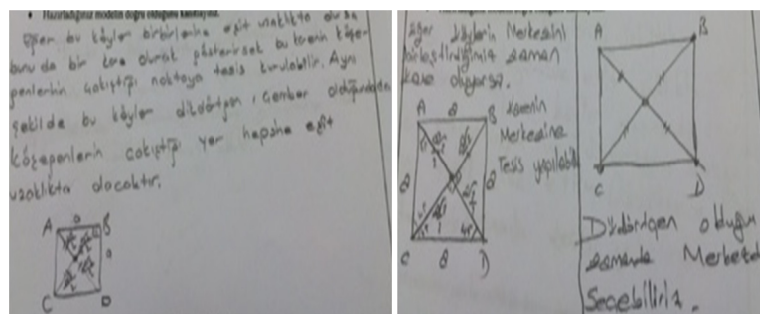 • Hazırladığınız modelin doğru olduğunu kanıtlayınız.
Eğer bu köyler birbirlerine eşit uzaklıkta olursa
bunu da bir kare olarak gösterirsek bu karenin köşe
genlerinin çakıştığı noktaya tesis kurulabilir. Aynı
şekilde bu köyler dikdörtgen, çember olduğunda
köşegenlerin çakıştığı yer hepsine eşit
uzaklıkta olacaktır.
A a B
a
C D
Eğer köylerin Merkezini
birleştirdiğimiz zaman
kare oluyorsa.
A a B karenin
Merkezine
Tesis yapılabilir
a a
45
C a D
A B
C D
Dikdörtgen olduğu
zamanda Merkezde
Seçebiliriz.